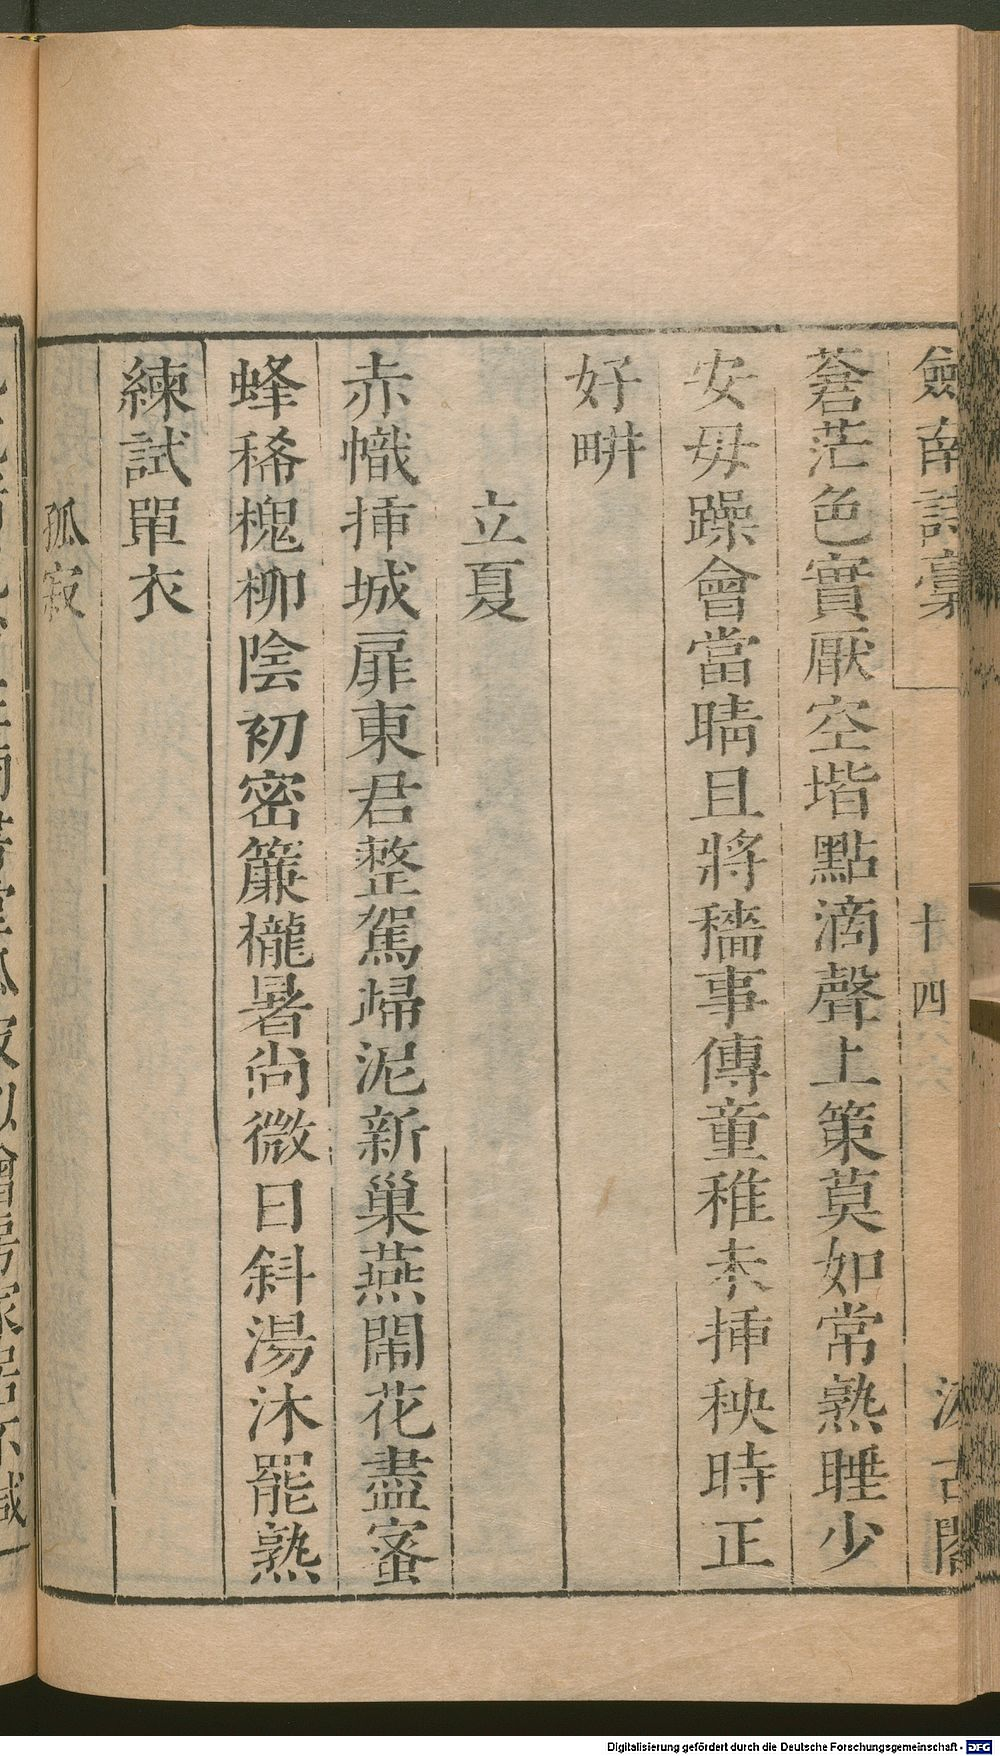 劒南詩稾
十四
汲古閣
蒼茫色實厭空堦點滴聲上策莫如常熟睡少
安毋躁會當晴且將穡事傳童稚未揷秧時正
好畊
立夏
赤幟揷城扉東君整駕歸泥新巢燕閙花盡蜜
蜂稀槐柳陰初密簾櫳暑尚微日斜湯沐罷熟
練試單衣
孤寂
Digitalisierung gefördert durch die Deutsche Forschungsgemeinschaft - DFG